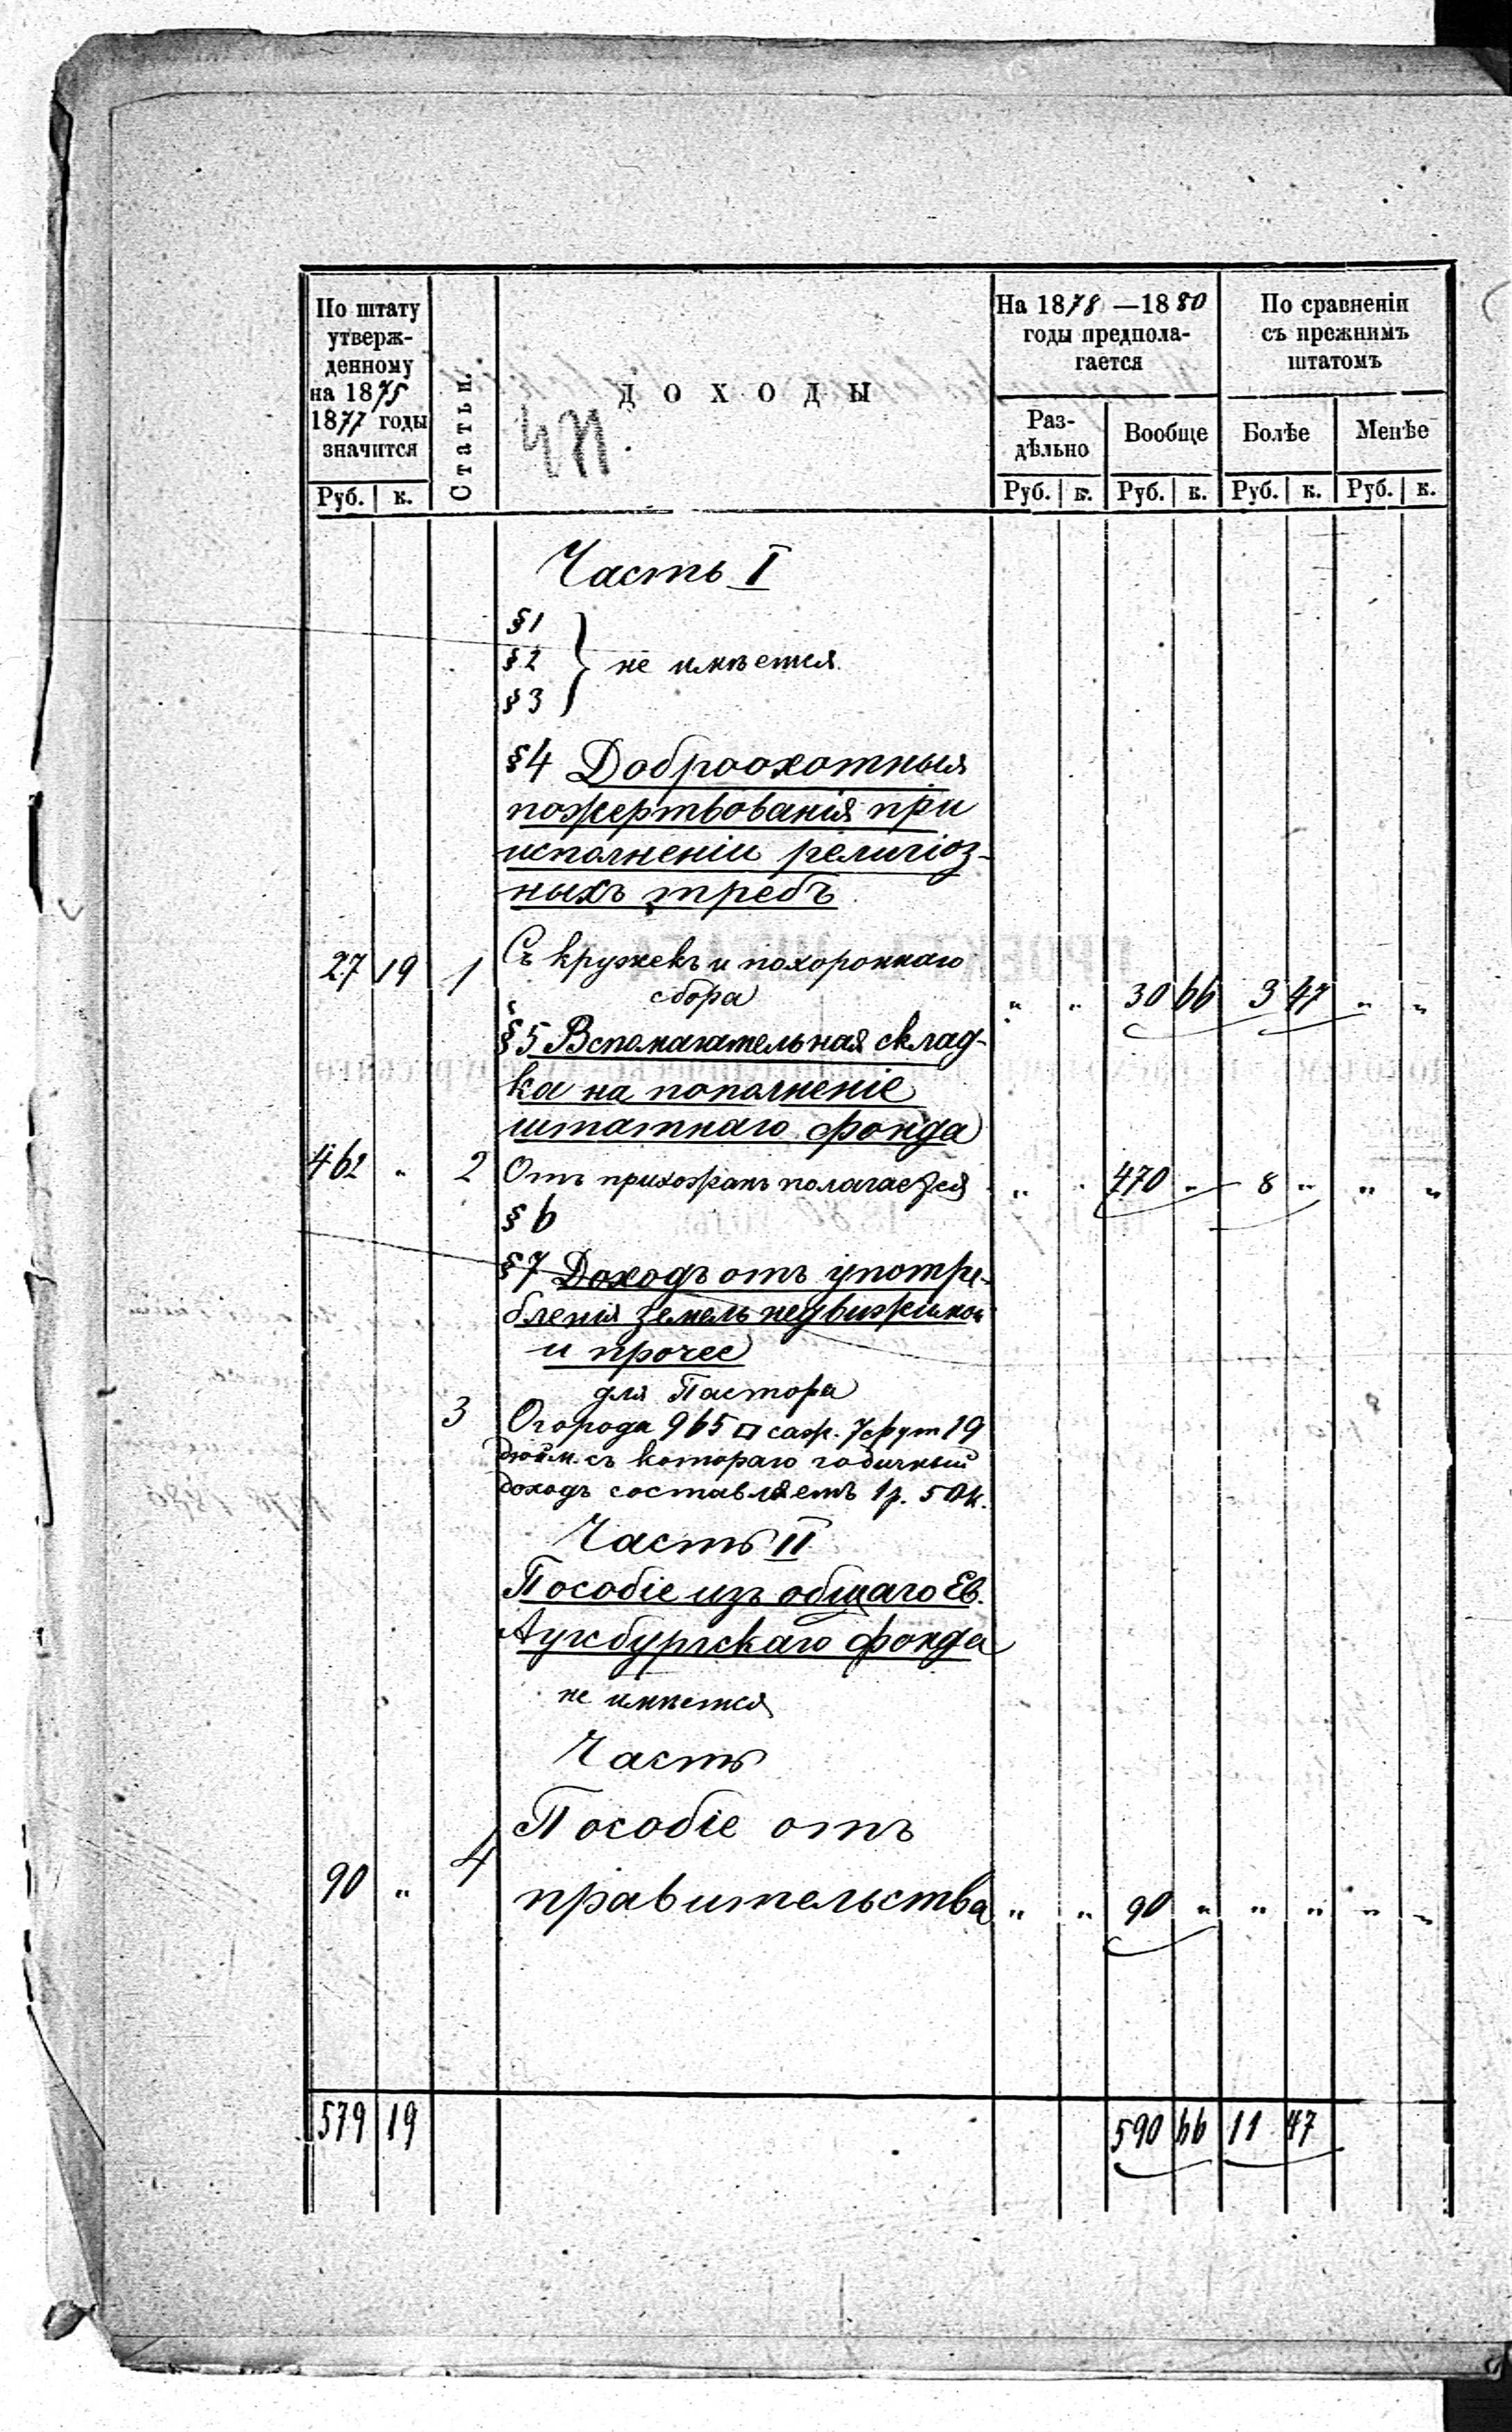 По штату
утверж-
денному
на 1875
1877 годы
значится
Руб. к.
Статьи.
ДОХОДЫ
На 1878 —1880
годы предпола-
гается
Раз-
дѣльно
Руб. к.
Вообще
Руб. к.
По сравненіи
съ прежнимъ
штатомъ
Болѣе
Руб. к.
Менѣе
Руб. к.
Часть I
§1
§2 } не имѣется.
§3
§4 Доброохотныя
пожертвованія при
исполненіи религіоз-
ныхъ требъ.
27 19 1 Съ кружекъ и похороннаго
сбора „ „ 30 66 3 47 „ „
§5 Вспомагательная склад-
ка на пополненіе
штатнаго фонда
462 „ 2 Отъ прихожанъ полагается „ „ 470 „ 8 „ „ „
§ 6
§7 Доходъ отъ употре-
бленія земель недвижимой
и прочее
для Пастора
3 Огорода 965 □ саж. 7 фут 19
дюйм. съ котораго годичный
доходъ составляетъ 1 р. 50 к.
Часть II
Пособіе изъ общаго Ев.
Аугсбургскаго фонда
не имѣется
Часть
Пособіе отъ
90 „ 4 правительства „ „ 90 „ „ „ „ „
579 19 590 66 11 47